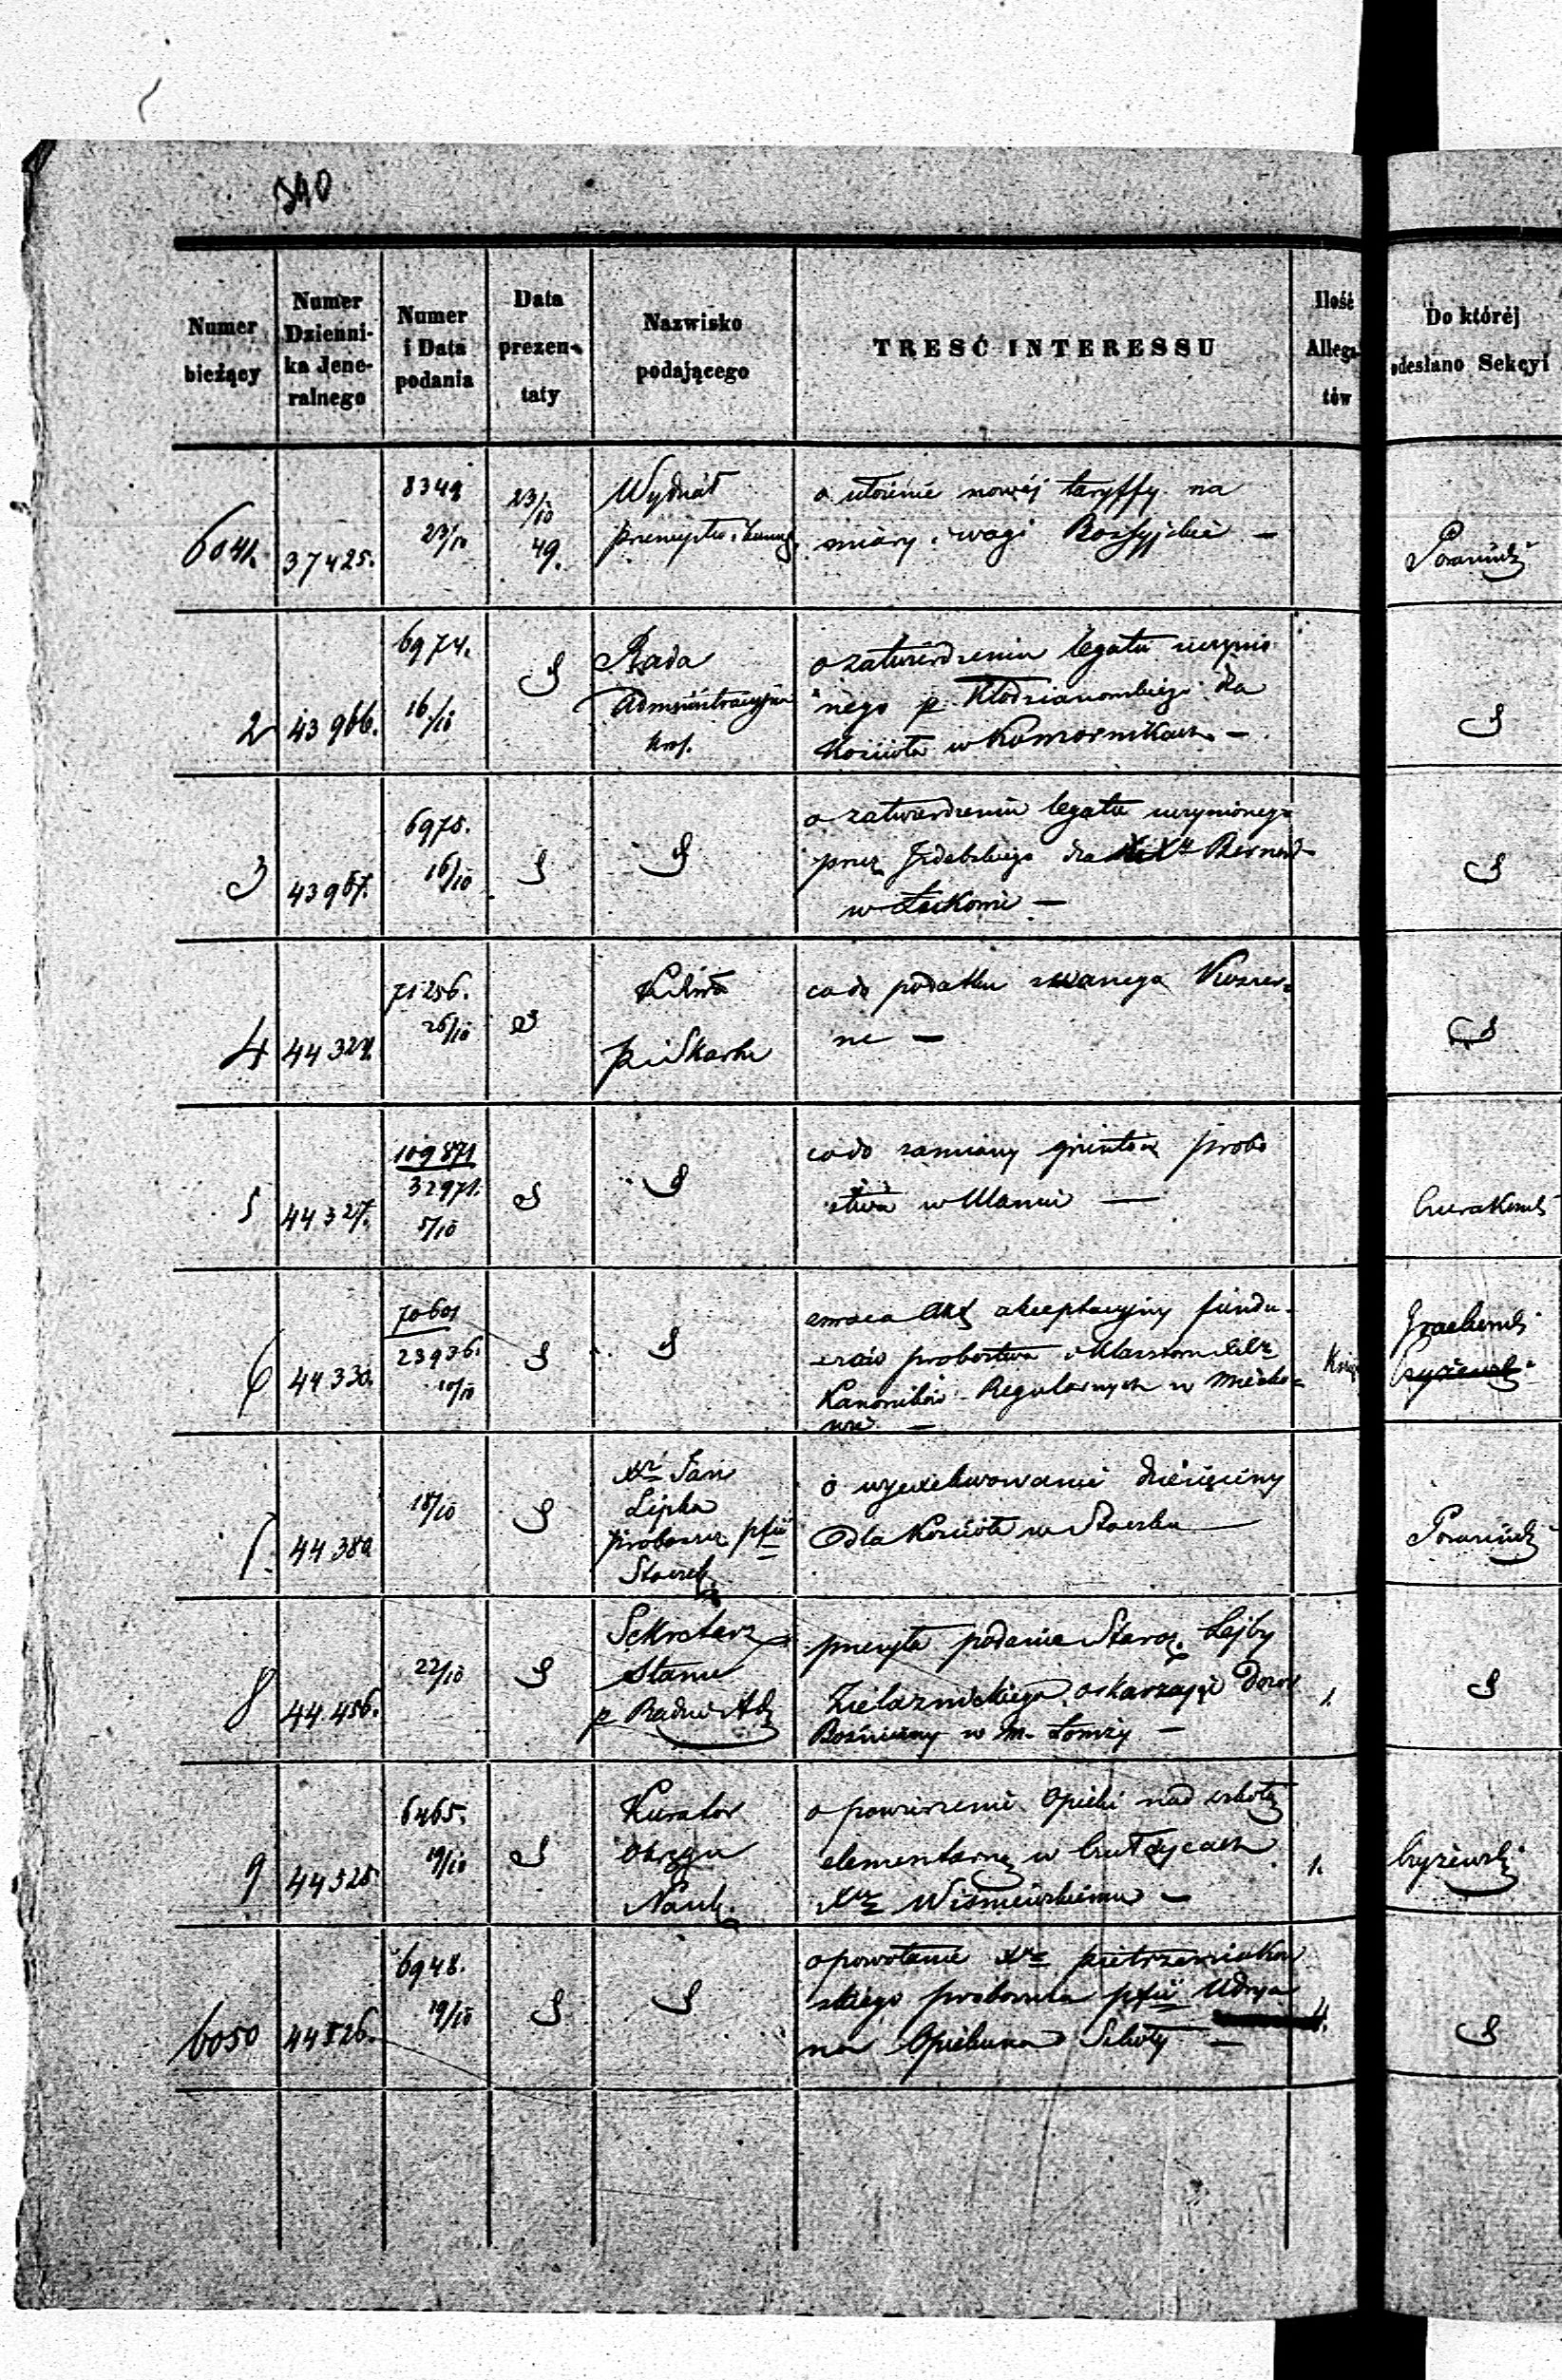 340
Numer bieżący
Numer Dzienni-ka Jene-ralnego
Numer i Data podania
Data prezen-taty
Nazwisko podającego
TREŚĆ INTERESSU
Ilość Allega-tów
Do któréj odesłano Sekcyi
6041.
37425.
8349
23/10
23/10
49.
Wydział
przemysłu i kunsz
o ułożenie nowéj taryffy na
miary i wagi Rossyjskie —
2
43966.
6974.
16/10
Rada
Administracyjna
Król.
o zatwierdzeniu legatu uczynio
nego p. Kłodzianowskiego dla
Kościoła w Komornikach —
3
43967.
6975.
16/10
o zatwierdzeniu legatu uczynionego
przez Jzdebskiego dla XX Bernard
w
4
44324.
71256.
26/10
co do podatku zwanego
ne —
5
44327.
109871
32971.
5/10
co do zamiany gruntów probo
stwa w Ulanie —
6
44330.
70601
23936.
10/10
zwraca akt akceptacyjny fundu
szów probostwa i Klasztoru
Kanoników Regularnych w Miecho-
wie —
7.
44380
18/10
Xr Jan
Lipka
proboszcz pfii
Stoczek
o wyexekwowanie dziesięciny
dla Kościoła w Stoczku —
8
44456.
22/10
Sekretarz
Stanu
p Radzie Ad
przesyła podanie Staroz. Lejby
Zielaznickiego oskarżając Dozor
Bożniczny w m. Łomży —
1.
9
44525
6465.
19/10
Kurator
Okręgu
Nauk.
o powierzenie Opieki nad szkołą
elementarną w
Xr Wiśniewskiemu —
1.
Czyżewski
6050
44526.
6948.
19/10
o powołanie Xr
skiego proboszcza pfii Udryn
na Opiekuna Szkoły —